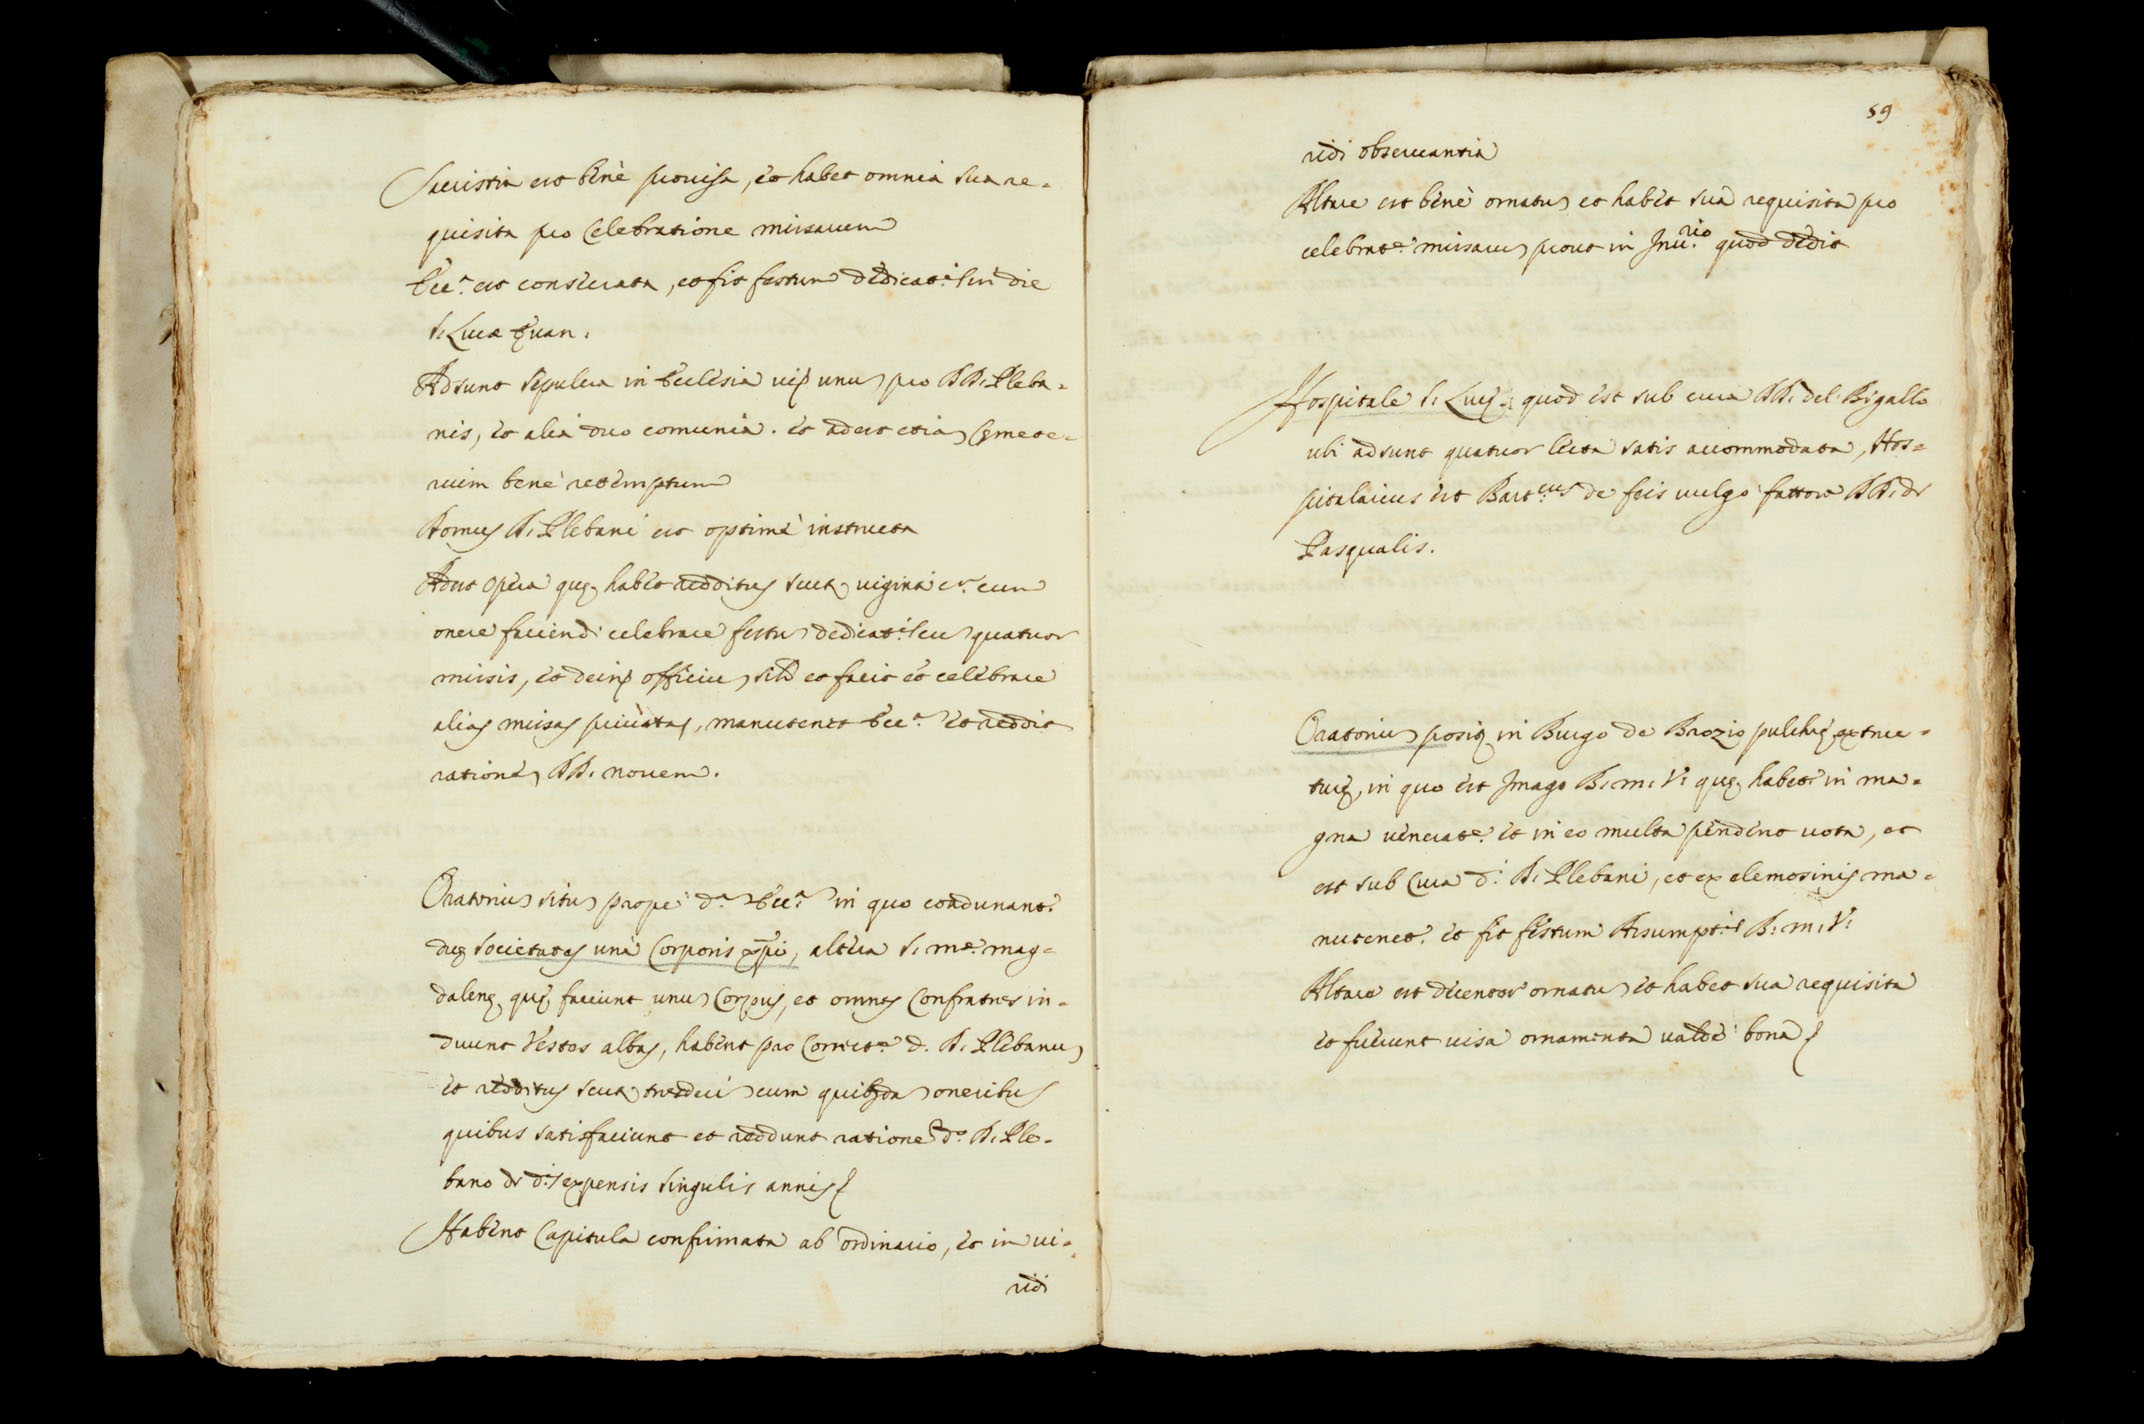 Sacristia est benè provisa, et habet omnia sua re-
quisita pro Celebratione missarum
Ecc.ª est consecrata, et fit festum dedicat.s in die
S. Lucæ Evan.
Adsunt sepulcra in Ecclesia unum pro DD. Pleba-
nis, et alia duo comunia. et adest etiam Cemete-
rium benè retemptum
Domus D. Plebani est optimè instructa
Adest Opera quę habet redditus scuta viginti cum
onere faciendi celebrare festum dedicat.s cum quatuor
missis, et officium et facit et celebrare
alias missas privatas, manutenet Ecc.ª et reddit
rationem DD. novem.
Oratorium situm propè d.ª Ecc.ª in quo coadunant.
duę societates una Corporis xpi, altera S. M.e Mag-
dalenę quę faciunt unum Corpus, et omnes Confratres in-
duunt vestes albas, habent pro Correct.e d. D. Plebanum
et redditus scuta tredecim cum quibusdam oneribus
quibus satisfaciunt et reddunt rationem d.o D. Ple-
bano de d.is expensis singulis annis
Habent Capitula confirmata ab ordinario, et in vi-
ridi
59
ridi observantia
Altare est benè ornatum et habet sua requisita pro
celebrat.e missarum prout in Inv.rio quod dedit
Hospitale S. Lucę quod est sub cura DD. del Bigallo
ubi adsunt quatuor lecta satis accommodata, Hos-
pitalarius est Bart.eus de fois vulgo fattore DD. de
Pasqualis.
Oratorium positum in Burgo de Brozio pulchrę extruc-
tum, in quo est Imago B. M. V. quę habet. in ma-
gna venerat.e et in eo multa pendent vota, et
est sub Cura d.i D. Plebani, et ex elemosinis ma-
nutenet. et fit festum Assumpt.s B. M. V.
Altare est decenter ornatum et habet sua requisita
et fuerunt visa ornamenta valdè bona